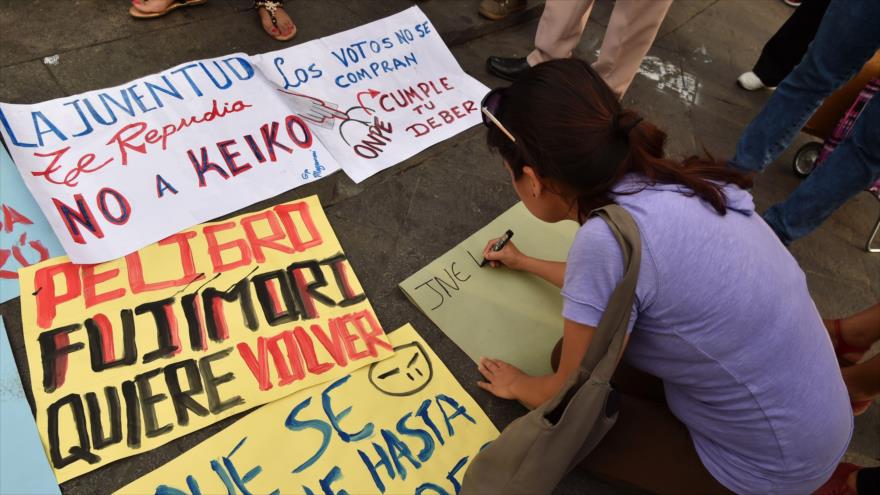 LA JUVENTUD
Te Repudia
NO A KEIKO
LOS VOTOS NO SE
COMPRAN
ONPE CUMPLE
TU
DEBER
PELIGRO
FUJIMORI
QUIERE VOLVER
JNE
QUE SE
VEN HASTA